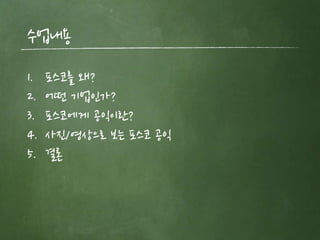 수업내용
1. 포스코를 왜?
2. 어떤 기업인가?
3. 포스코에게 공익이란?
4. 사진/영상으로 보는 포스코 공익
5. 결론